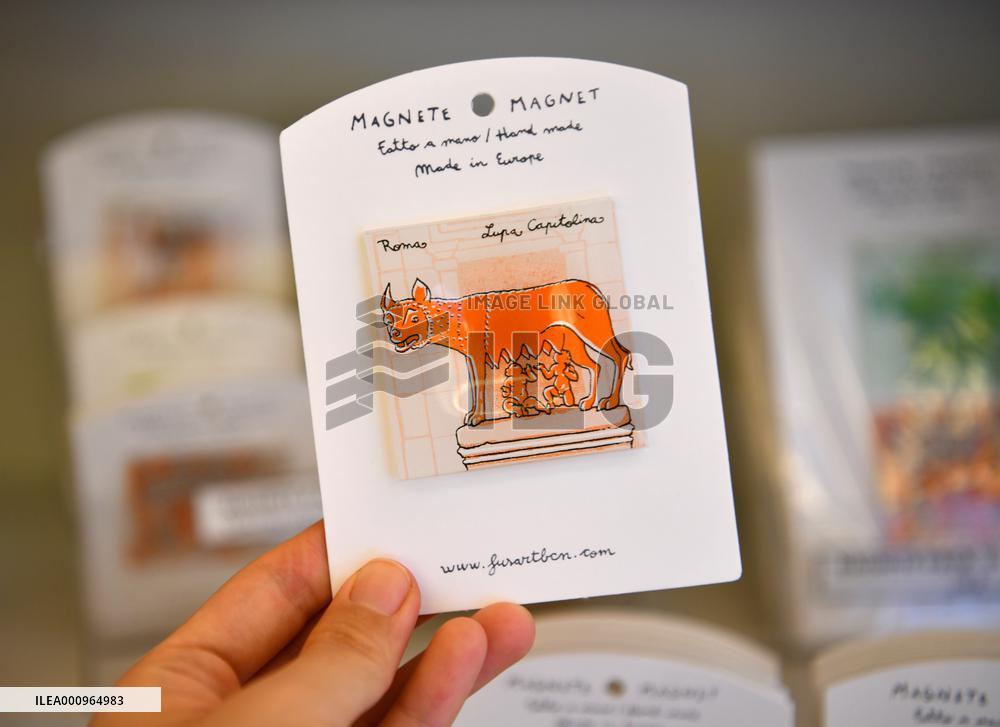 MAGNETE MAGNET
Fatto a mano / Hand made
Made in Europe
Roma Lupa Capitolina
IMAGE LINK GLOBAL
ILG
www.fusartbcn.com
MAGNETE MAGNET
MAGNETE
ILEA000964983